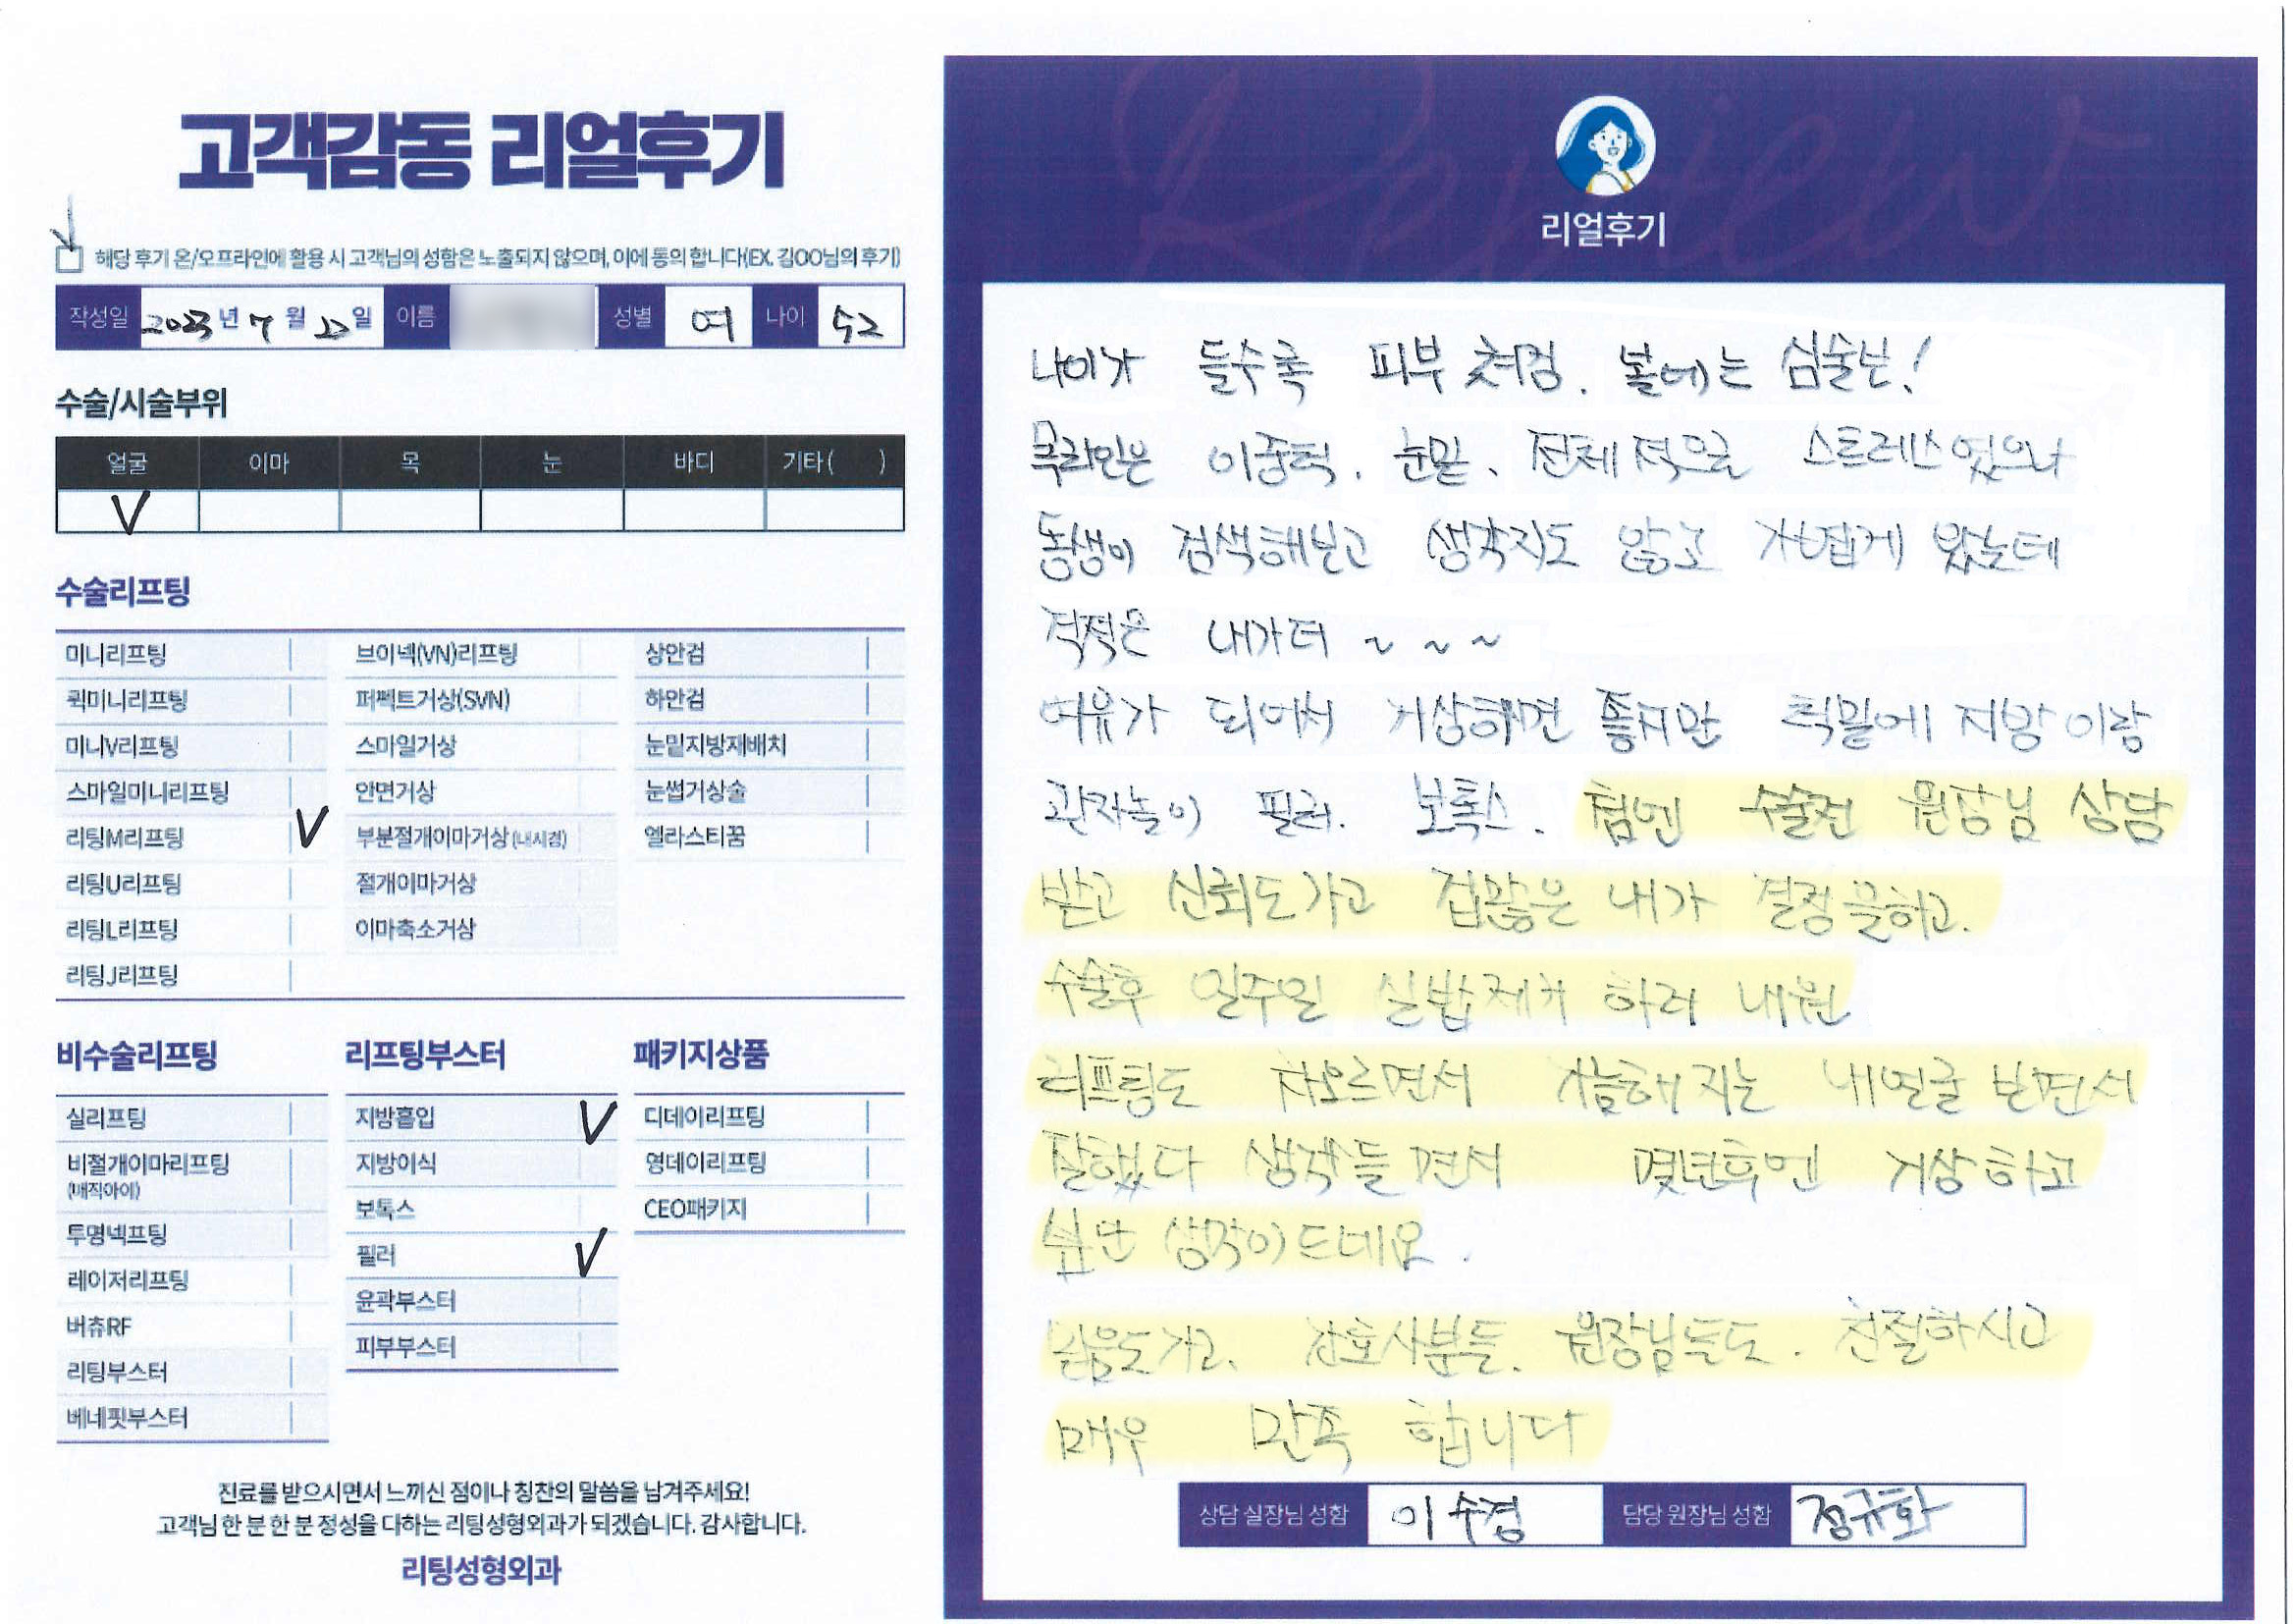 고객감동 리얼후기
해당 후기 온/오프라인에 활용 시 고객님의 성함은 노출되지 않으며, 이에 동의 합니다(EX. 김OO님의 후기)
작성일 2023년 7월 22일 이름 성별 여 나이 52
수술/시술부위
얼굴 이마 목 눈 바디 기타( )
V
수술리프팅
미니리프팅 브이넥(VN)리프팅 상안검
퀵미니리프팅 퍼펙트거상(SVN) 하안검
미니V리프팅 스마일거상 눈밑지방재배치
스마일미니리프팅 안면거상 눈썹거상술
리팅M리프팅 V 부분절개이마거상(내시경) 엘라스티꿈
리팅U리프팅 절개이마거상
리팅L리프팅 이마축소거상
리팅J리프팅
비수술리프팅
실리프팅
비절개이마리프팅
(매직아이)
투명넥프팅
레이저리프팅
버츄RF
리팅부스터
베네핏부스터
리프팅부스터
지방흡입 V
지방이식
보톡스
필러 V
윤곽부스터
피부부스터
패키지상품
디데이리프팅
영데이리프팅
CEO패키지
진료를 받으시면서 느끼신 점이나 칭찬의 말씀을 남겨주세요!
고객님 한 분 한 분 정성을 다하는 리팅성형외과가 되겠습니다. 감사합니다.
리팅성형외과
Review
리얼후기
나이가 들수록 피부 쳐짐. 볼에는 심술보!
목라인은 이중턱. 눈밑. 전체적으로 스트레스였으나
동생이 검색해보고 생각지도 않고 가볍게 왔는데
적적은 내가더 ~ ~ ~
여유가 되어서 거상하면 좋지만 턱밑에 지방이랑
관자놀이 필러. 보톡스. 첨엔 수술전 원장님 상담
받고 신뢰도가고 겁많은 내가 결정을하고.
수술후 일주일 실밥제거 하러 내원
리프팅도 차오르면서 갸름해지는 내얼굴 보면서
잘했다 생각들면서 몇년후엔 거상하고
싶단 생각이드네요.
믿음도가고. 간호사분들. 원장님들도. 친절하시고
매우 만족 합니다
상담 실장님 성함 이수경 담당 원장님 성함 정규화